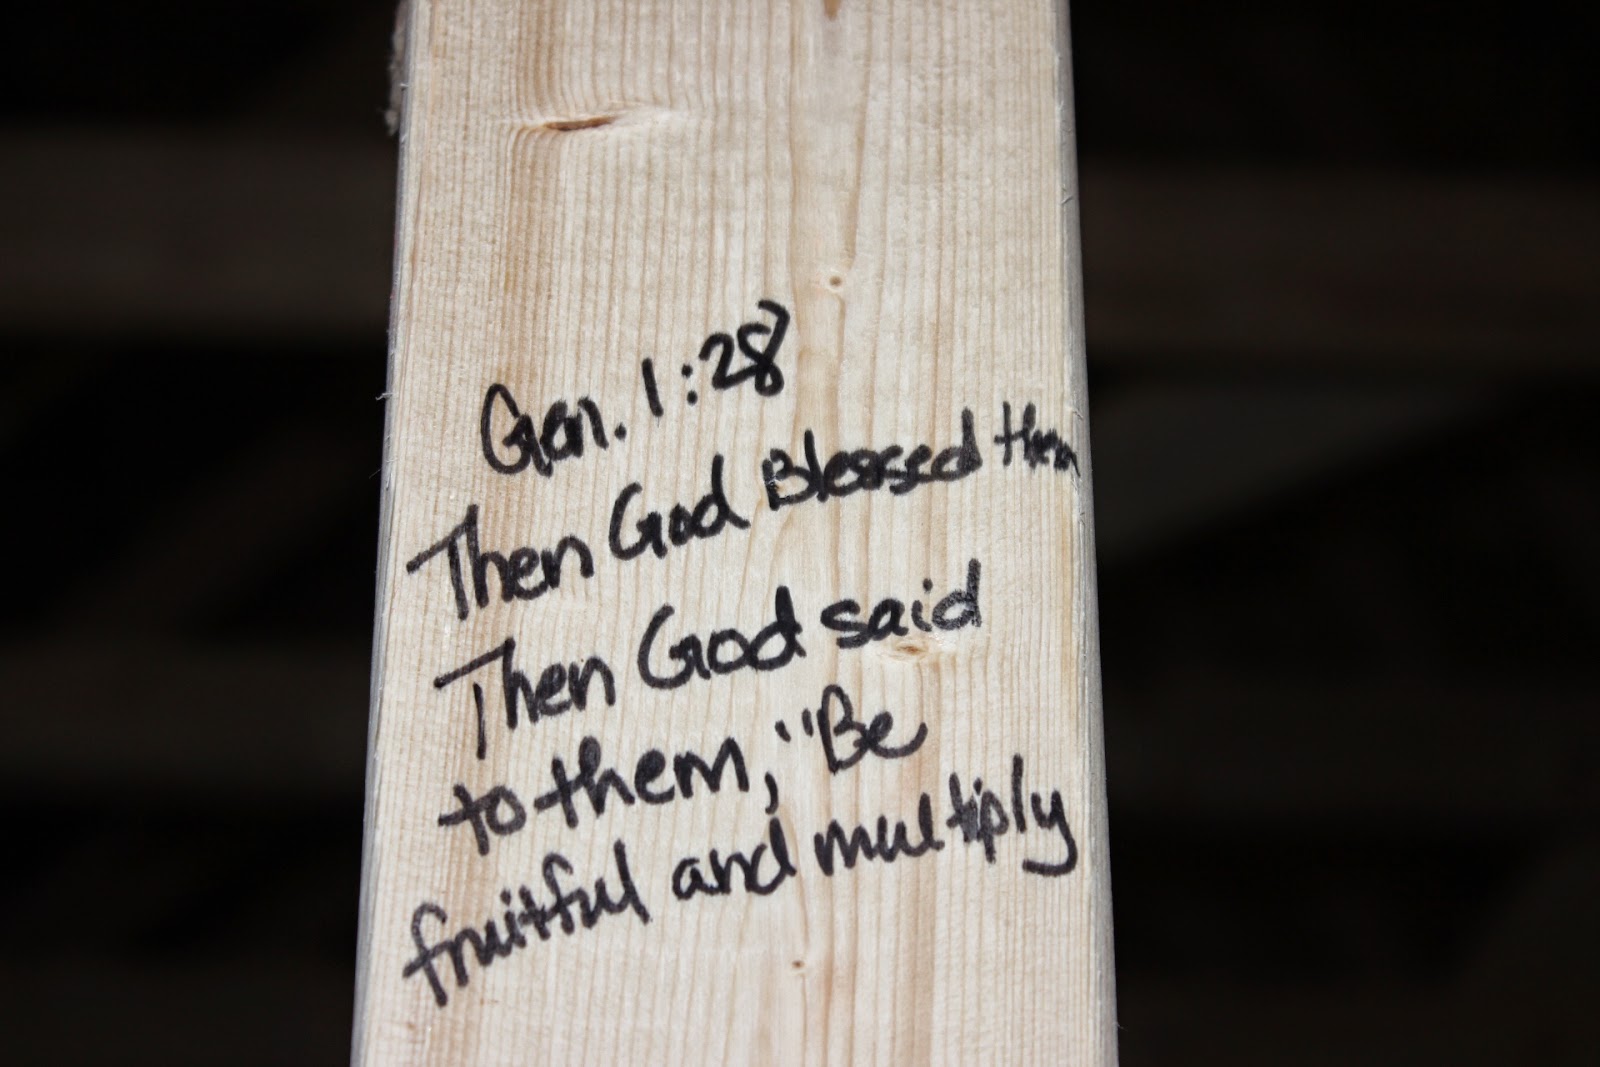 Gen. 1:28
Then God Blessed them
Then God said
to them, "Be
fruitful and multiply